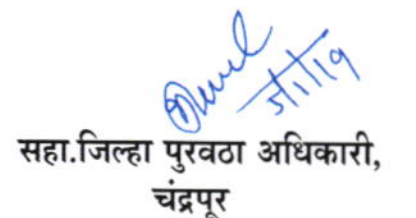 सहा.जिल्हा पुरवठा अधिकारी,
चंद्रपूर